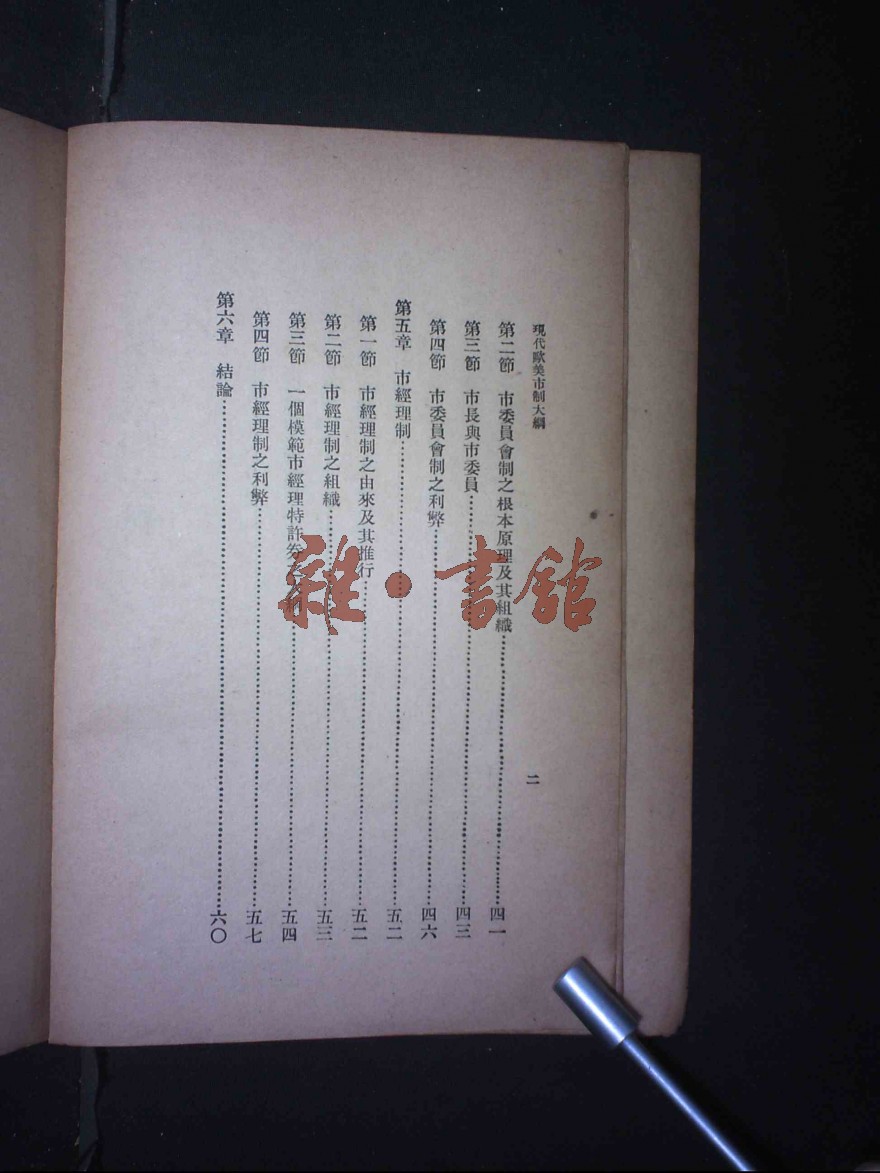 現代歐美市制大綱
二
第二節 市委員會制之根本原理及其組織 四一
第三節 市長與市委員 四三
第四節 市委員會制之利弊 四六
第五章 市經理制 五二
第一節 市經理制之由來及其推行 五二
第二節 市經理制之組織 五三
第三節 一個模範市經理特許券之 五四
第四節 市經理制之利弊 五七
第六章 結論 六〇
雜·書館